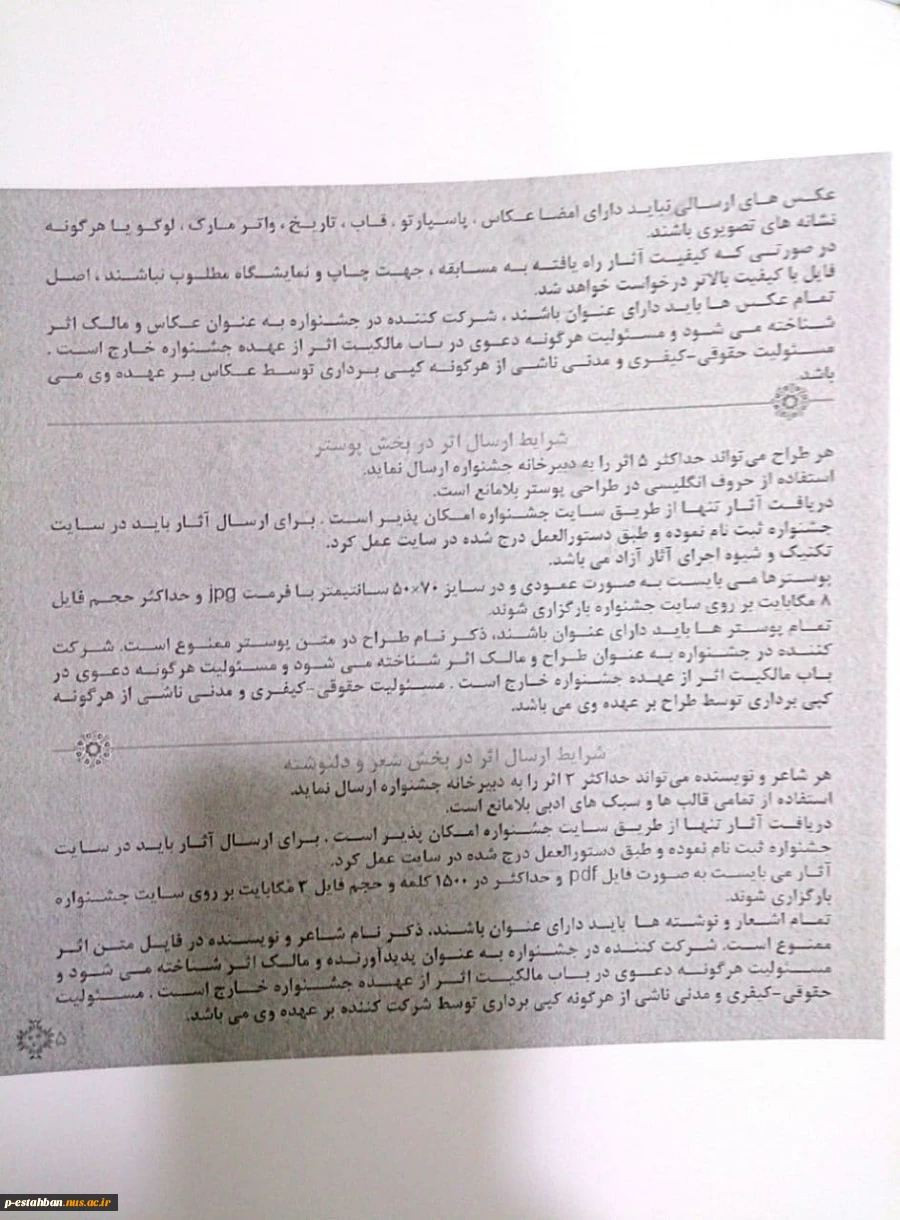 عکس های ارسالی نباید دارای امضا عکاس ، پاسپارتو ، قاب ، تاریخ ، واتر مارک ، لوگو یا هرگونه
نشانه های تصویری باشند.
در صورتی که کیفیت آثار راه یافته به مسابقه ، جهت چاپ و نمایشگاه مطلوب نباشند ، اصل
فایل با کیفیت بالاتر درخواست خواهد شد.
تمام عکس ها باید دارای عنوان باشند ، شرکت کننده در جشنواره به عنوان عکاس و مالک اثر
شناخته می شود و مسئولیت هرگونه دعوی در باب مالکیت اثر از عهده جشنواره خارج است .
مسئولیت حقوقی-کیفری و مدنی ناشی از هرگونه کپی برداری توسط عکاس بر عهده وی می
باشد.
شرایط ارسال اثر در بخش پوستر
هر طراح می‌تواند حداکثر ۵ اثر را به دبیرخانه جشنواره ارسال نماید.
استفاده از حروف انگلیسی در طراحی پوستر بلامانع است.
دریافت آثار تنها از طریق سایت جشنواره امکان پذیر است . برای ارسال آثار باید در سایت
جشنواره ثبت نام نموده و طبق دستورالعمل درج شده در سایت عمل کرد.
تکنیک و شیوه اجرای آثار آزاد می باشد.
پوسترها می بایست به صورت عمودی و در سایز ۷۰×۵۰ سانتیمتر با فرمت jpg و حداکثر حجم فایل
۸ مگابایت بر روی سایت جشنواره بارگزاری شوند.
تمام پوستر ها باید دارای عنوان باشند، ذکر نام طراح در متن پوستر ممنوع است. شرکت
کننده در جشنواره به عنوان طراح و مالک اثر شناخته می شود و مسئولیت هرگونه دعوی در
باب مالکیت اثر از عهده جشنواره خارج است . مسئولیت حقوقی-کیفری و مدنی ناشی از هرگونه
کپی برداری توسط طراح بر عهده وی می باشد.
شرایط ارسال اثر در بخش شعر و دلنوشته
هر شاعر و نویسنده می‌تواند حداکثر ۳ اثر را به دبیرخانه جشنواره ارسال نماید.
استفاده از تمامی قالب ها و سبک های ادبی بلامانع است.
دریافت آثار تنها از طریق سایت جشنواره امکان پذیر است . برای ارسال آثار باید در سایت
جشنواره ثبت نام نموده و طبق دستورالعمل درج شده در سایت عمل کرد.
آثار می بایست به صورت فایل pdf و حداکثر در ۱۵۰۰ کلمه و حجم فایل ۳ مگابایت بر روی سایت جشنواره
بارگزاری شوند.
تمام اشعار و نوشته ها باید دارای عنوان باشند، ذکر نام شاعر و نویسنده در فایل متن اثر
ممنوع است. شرکت کننده در جشنواره به عنوان پدیدآورنده و مالک اثر شناخته می شود و
مسئولیت هرگونه دعوی در باب مالکیت اثر از عهده جشنواره خارج است . مسئولیت
حقوقی-کیفری و مدنی ناشی از هرگونه کپی برداری توسط شرکت کننده بر عهده وی می باشد.
۵
p-estahban.nus.ac.ir